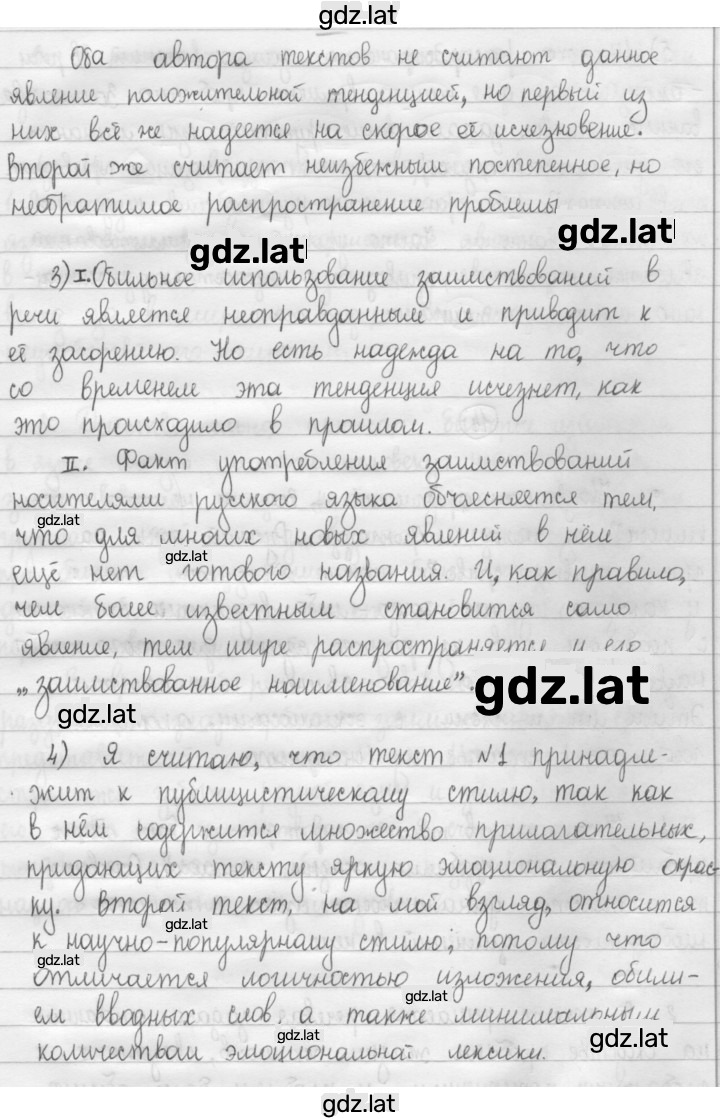 gdz.lat
Оба автора текстов не считают данное
явление положительной тенденцией, но первый из
них всё же надеется на скорое её исчезновение.
Второй же считает неизбежным постепенное, но
необратимое распространение проблемы
gdz.lat
gdz.lat
3) I. Обильное использование заимствований в
речи является неоправданным и приводит к
её засорению. Но есть надежда на то, что
со временем эта тенденция исчезнет, как
это происходило в прошлом.
II. Факт употребления заимствований
носителями русского языка объясняется тем,
gdz.lat
что для многих новых явлений в нём
gdz.lat
ещё нет готового названия. И, как правило,
чем более известным становится само
gdz.lat
явление, тем шире распространяется и его
„заимствованное наименование".
gdz.lat
gdz.lat
4) Я считаю, что текст №1 принадле-
жит к публицистическому стилю, так как
в нём содержится множество прилагательных,
придающих тексту яркую эмоциональную окрас-
ку. Второй текст, на мой взгляд, относится
gdz.lat
к научно-популярному стилю, потому что
gdz.lat
отличается логичностью изложения, обили-
gdz.lat
ем вводных слов, а также минимальным
gdz.lat
gdz.lat
количеством эмоциональной лексики.
gdz.lat